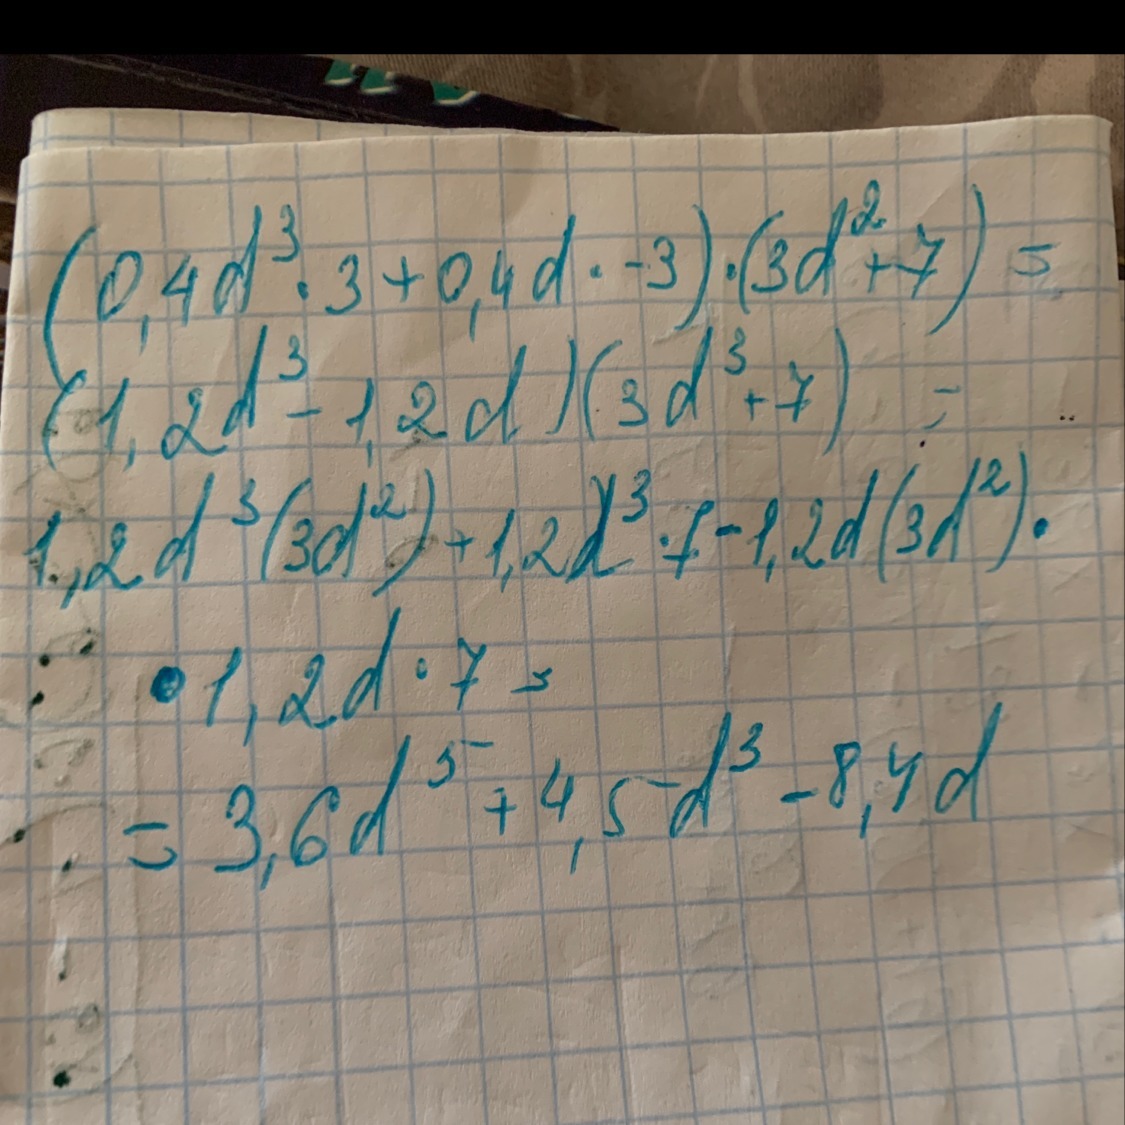 (0,4d³·3+0,4d·-3)·(3d²+7)=
(1,2d³-1,2d)(3d³+7) =
1,2d³(3d²)+1,2d³·7-1,2d(3d²)·
·1,2d·7=
=3,6d⁵+4,5d³-8,4d